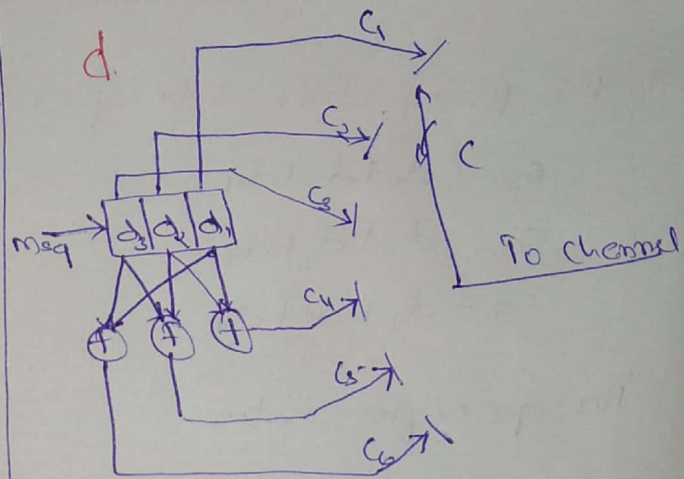 d.
C1
C2
C
C3
msg
d3 d2 d1
To channel
C4
+ + +
C5
C6